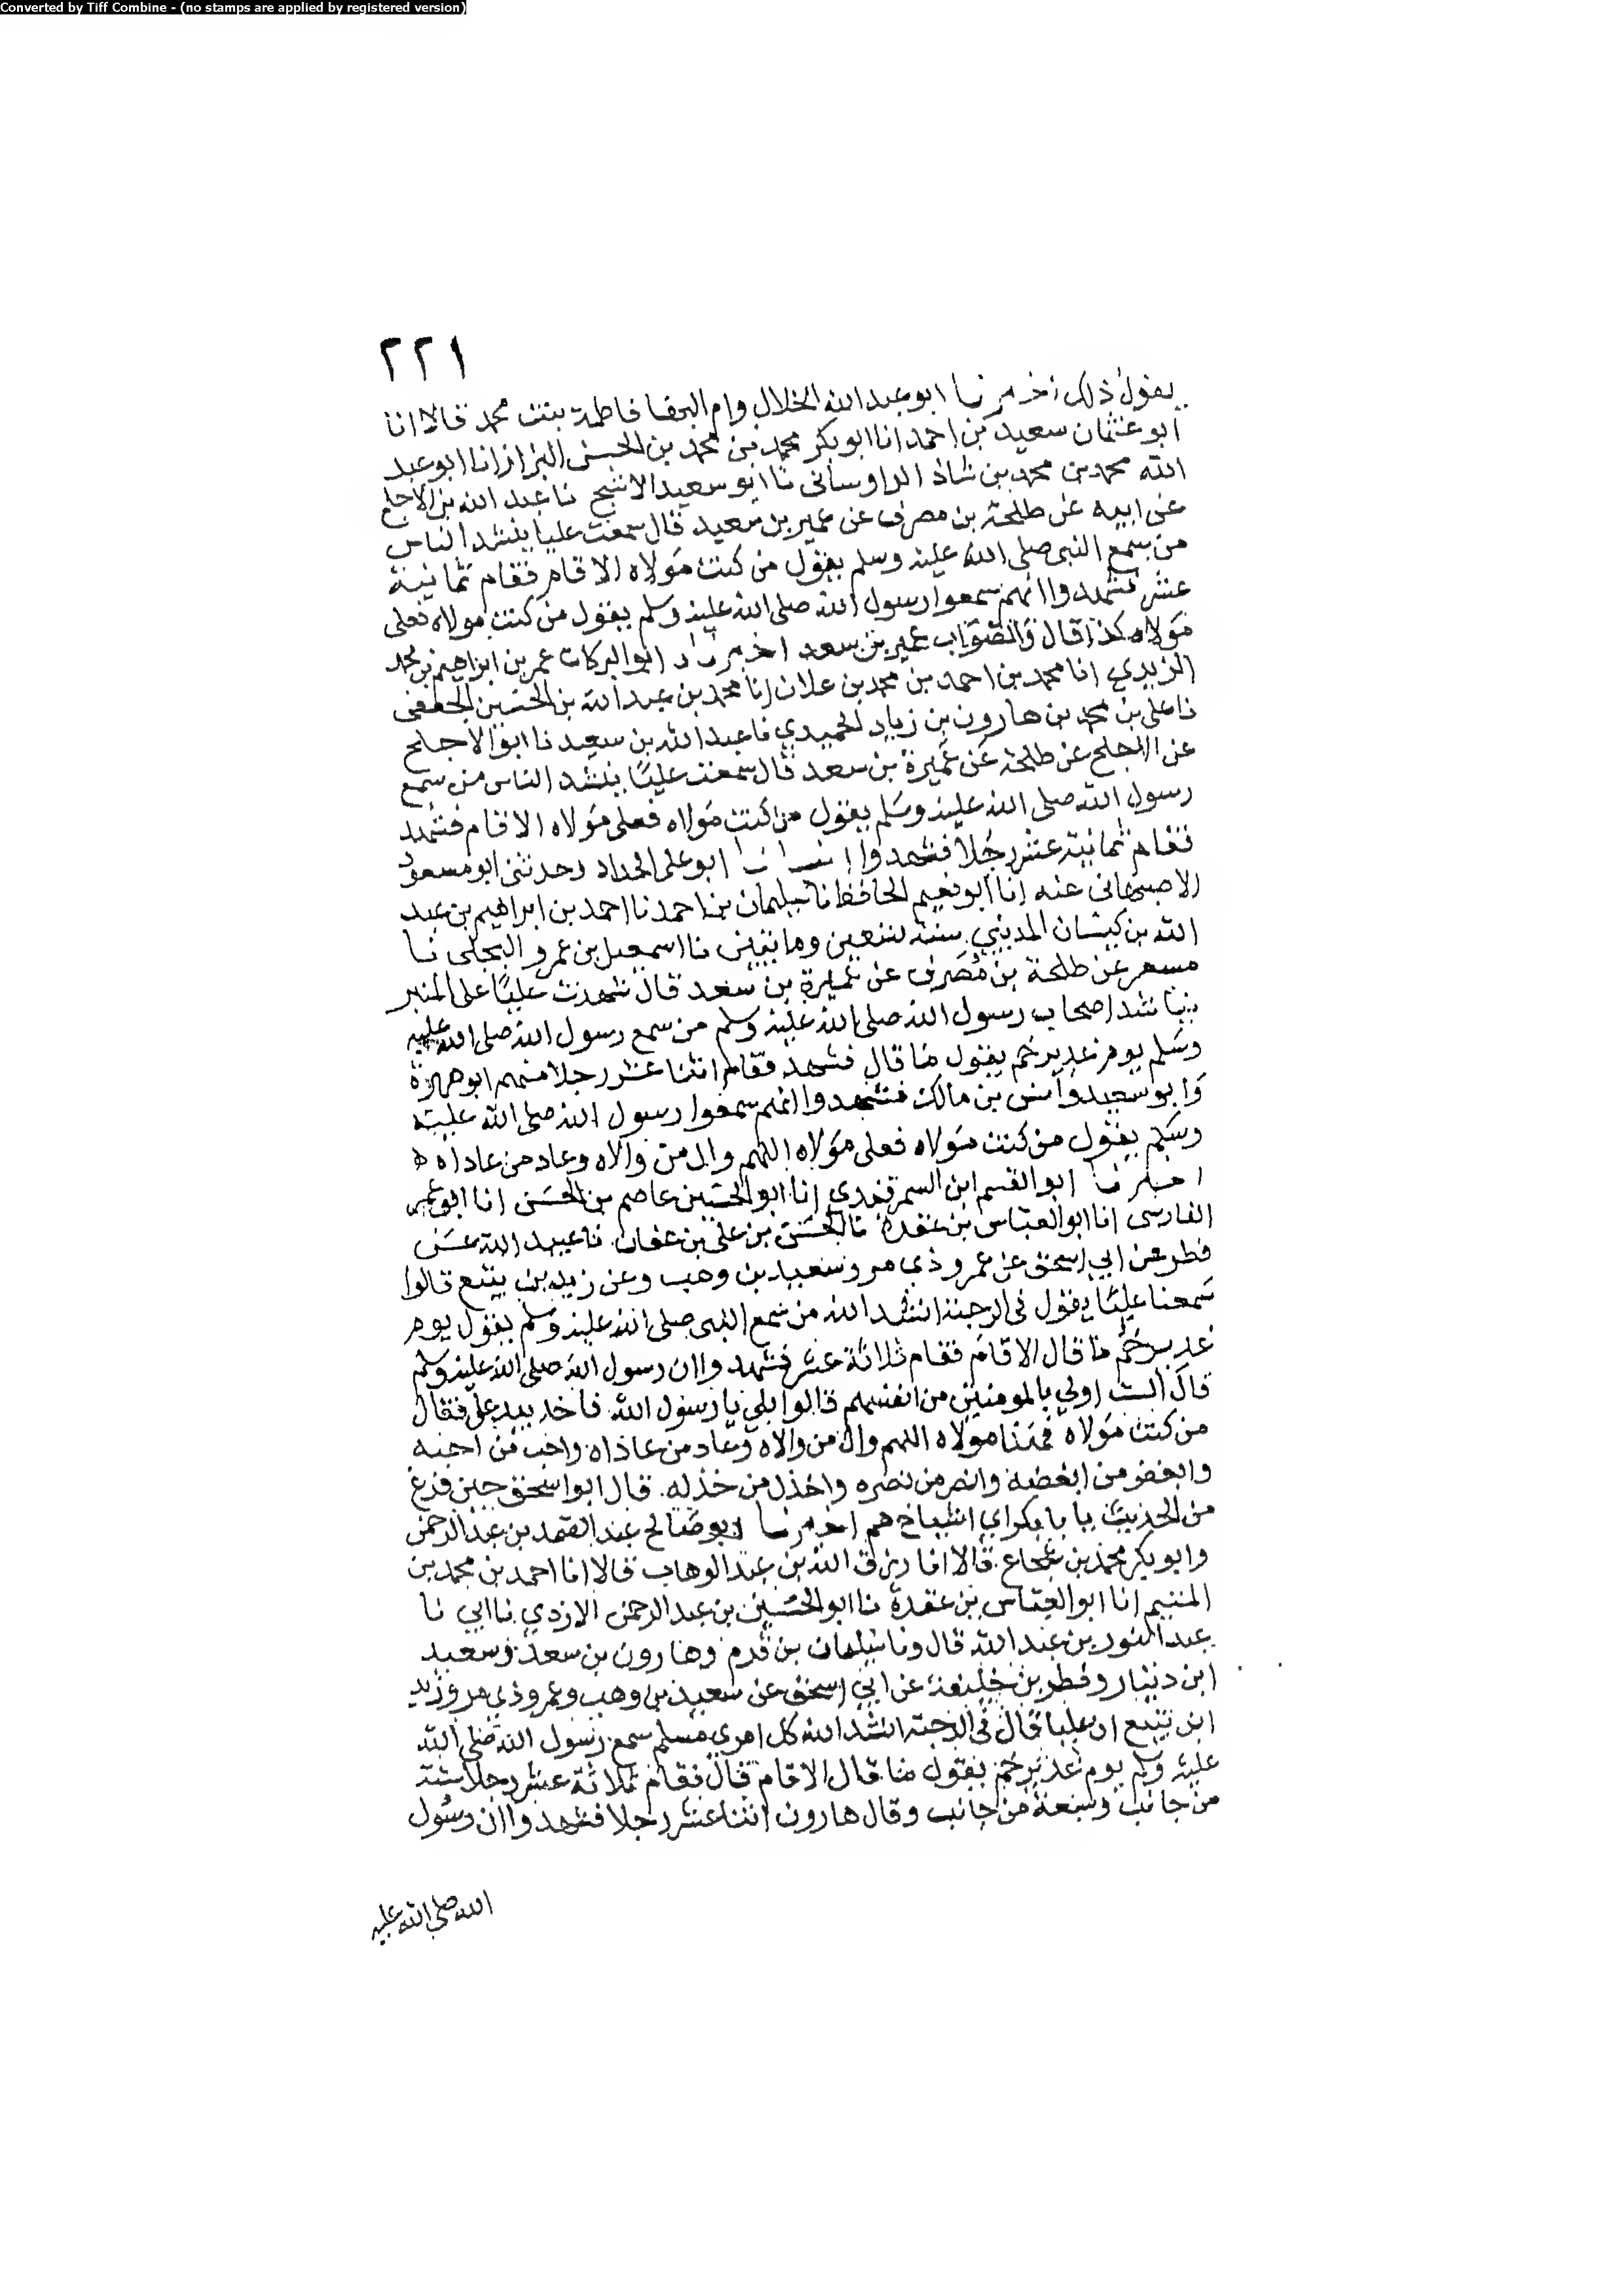 Converted by Tiff Combine - (no stamps are applied by registered version)
٢٢١
يقول ذلك اخبرنا ابو عبد الله الخلال وام البها فاطمة بنت محمد قالا انا
ابو عثمان سعيد بن احمد انا ابو بكر محمد بن محمد بن الحسن البزاز انا ابو عبد
الله محمد بن محمد بن شاذ الراوساني نا ابو سعيد الاشج نا عبد الله بن الاجلح
عن ابيه عن طلحة بن مصرف عن عمير بن سعيد قال سمعت عليا ينشد الناس
من سمع النبي صلى الله عليه وسلم يقول من كنت مولاه الا قام فقام ثمانية
عشر فشهدوا انهم سمعوا رسول الله صلى الله عليه وسلم يقول من كنت مولاه فعلي
مولاه كذا قال والصواب عمير بن سعد اخبرنا ابو البركات عمر بن ابراهيم بن محمد
الزيدي انا محمد بن احمد بن محمد بن علان انا محمد بن عبد الله بن الحسين الجعفي
نا علي بن محمد بن هارون بن زياد الحميدي نا عبد الله بن سعيد نا ابو الاجلح
عن الاجلح عن طلحة عن عميرة بن سعد قال سمعت عليا ينشد الناس من سمع
رسول الله صلى الله عليه وسلم يقول من كنت مولاه فعلي مولاه الا قام فشهد
فقام ثمانية عشر رجلا فشهدوا انبانا ابو علي الحداد وحدثني ابو مسعود
الاصبهاني عنه انا ابو نعيم الحافظ نا سليمان بن احمد نا احمد بن ابراهيم بن عبد
الله بن كيسان المديني سنة تسعين ومايتين نا اسمعيل بن عمرو البجلي نا
مسعر عن طلحة بن مصرف عن عميرة بن سعد قال شهدت عليا على المنبر
يناشد اصحاب رسول الله صلى الله عليه وسلم من سمع رسول الله صلى الله عليه
وسلم يوم غدير خم يقول ما قال فشهد فقام اثنا عشر رجلا منهم ابو هريرة
وابو سعيد وانس بن مالك فشهدوا انهم سمعوا رسول الله صلى الله عليه
وسلم يقول من كنت مولاه فعلي مولاه اللهم وال من والاه وعاد من عاداه ه
اخبرنا ابو القسم ابن السمرقندي انا ابو الحسين عاصم بن الحسن انا ابو عمر
الفارسي انا ابو العباس بن عقدة نا الحسن بن علي بن عفان نا عبيد الله عن
فطر عن ابي اسحق عن عمرو ذي مر وسعيد بن وهب وعن زيد بن يثيع قالوا
سمعنا عليا يقول في الرحبة انشد الله من سمع النبي صلى الله عليه وسلم يقول يوم
غدير خم ما قال الا قام فقام ثلاثة عشر فشهدوا ان رسول الله صلى الله عليه وسلم
قال الست اولي بالمومنين من انفسهم قالوا بلي يا رسول الله فاخد بيد علي فقال
من كنت مولاه فهذا مولاه اللهم وال من والاه وعاد من عاداه واحب من احبه
وابغض من ابغضه وانصر من نصره واخذل من خذله قال ابو اسحق حين فرغ
من الحديث يا با بكر اي اشياخ هم اخبرنا ابو صالح عبد الصمد بن عبد الرحمن
وابو بكر محمد بن شجاع قالا انا رزق الله بن عبد الوهاب قالا انا احمد بن محمد بن
المتيم انا ابو العباس بن عقدة نا ابو الحسين بن عبد الرحمن الازدي نا ابي نا
عبد النور بن عبد الله قال ونا سليمان بن قرم وهارون بن سعد وسعيد
ابن دينار وفطر بن خليفة عن ابي اسحق عن سعيد بن وهب وعمرو ذي مر وزيد
ابن يثيع ان عليا قال في الرحبة انشد الله كل امرى مسلم سمع رسول الله صلى الله
عليه وسلم يوم غدير خم يقول ما قال الا قام قال فقام ثلاثة عشر رجلا ستة
من جانب وسبعة من جانب وقال هارون اثنا عشر رجلا فشهدوا ان رسول
الله صلى الله عليه